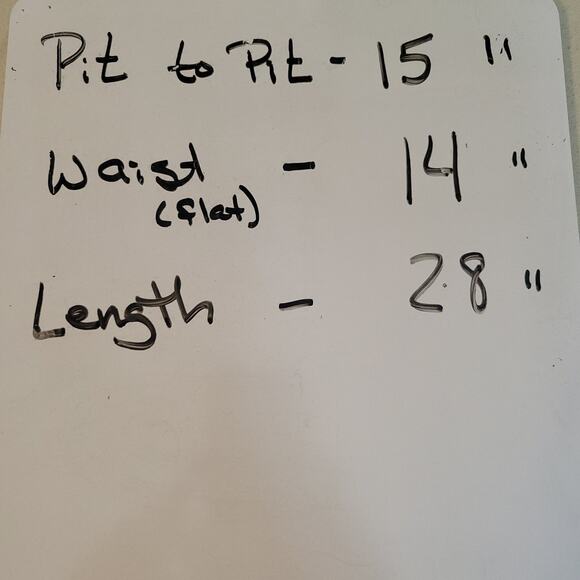 Pit to Pit - 15 "
Waist - 14 "
(flat)
Length - 28 "